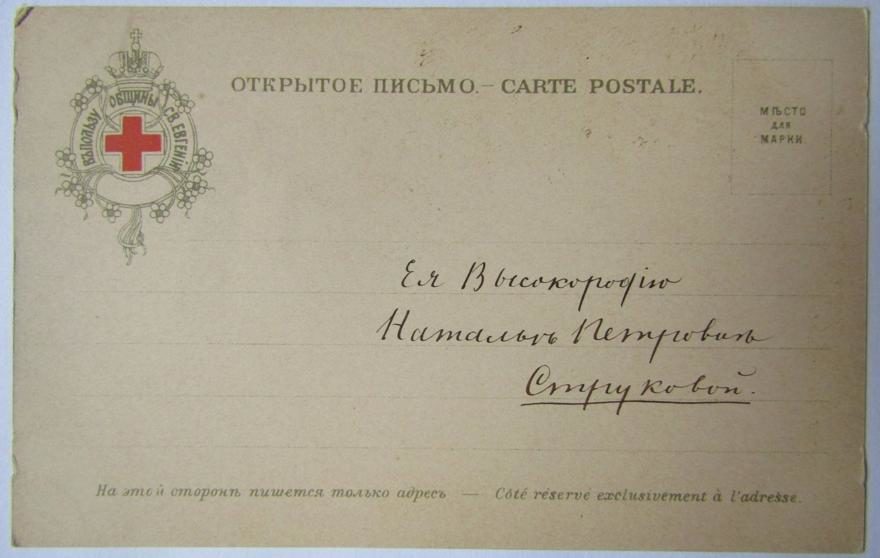 ВЪ ПОЛЬЗУ ОБЩИНЫ СВ. ЕВГЕНІИ
ОТКРЫТОЕ ПИСЬМО.— CARTE POSTALE.
МѢСТО
ДЛЯ
МАРКИ
Ея Высокородію
Натальѣ Петровнѣ
Струковой.
На этой сторонѣ пишется только адресъ — Côté réservé exclusivement à l'adresse.